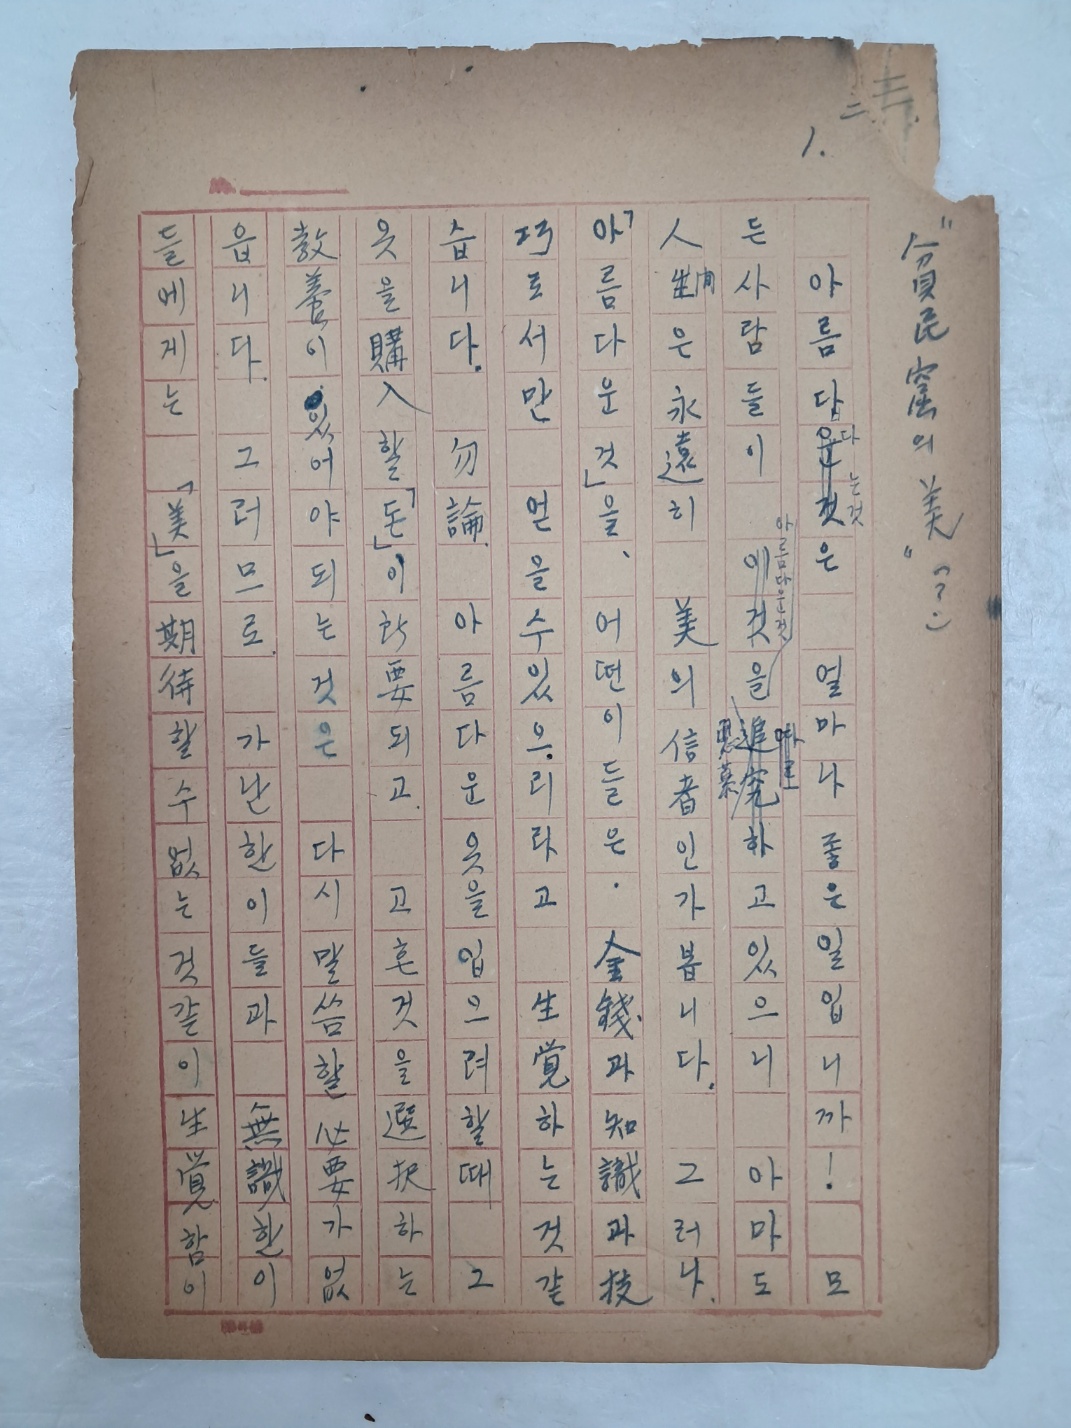 1.
"貧民窟의 美" (?)
아름답다는것은 얼마나 좋은일입니까! 모
든사람들이 아름다운것을 하고있으니 아마도
人間은永遠히 美의信者인가봅니다. 그러나.
「아름다운것」을、어떤이들은. 金錢과知識과技
巧로서만 얻을수있으리라고 生覚하는것같
습니다. 勿論、아름다운옷을입으려할때 그
옷을購入할「돈」이必要되고. 고흔것을選択하는
敎養이있어야되는것은 다시말씀할必要가없
읍니다. 그러므로. 가난한이들과 無識한이
들에게는 「美」을期待할수없는것같이生覚함이